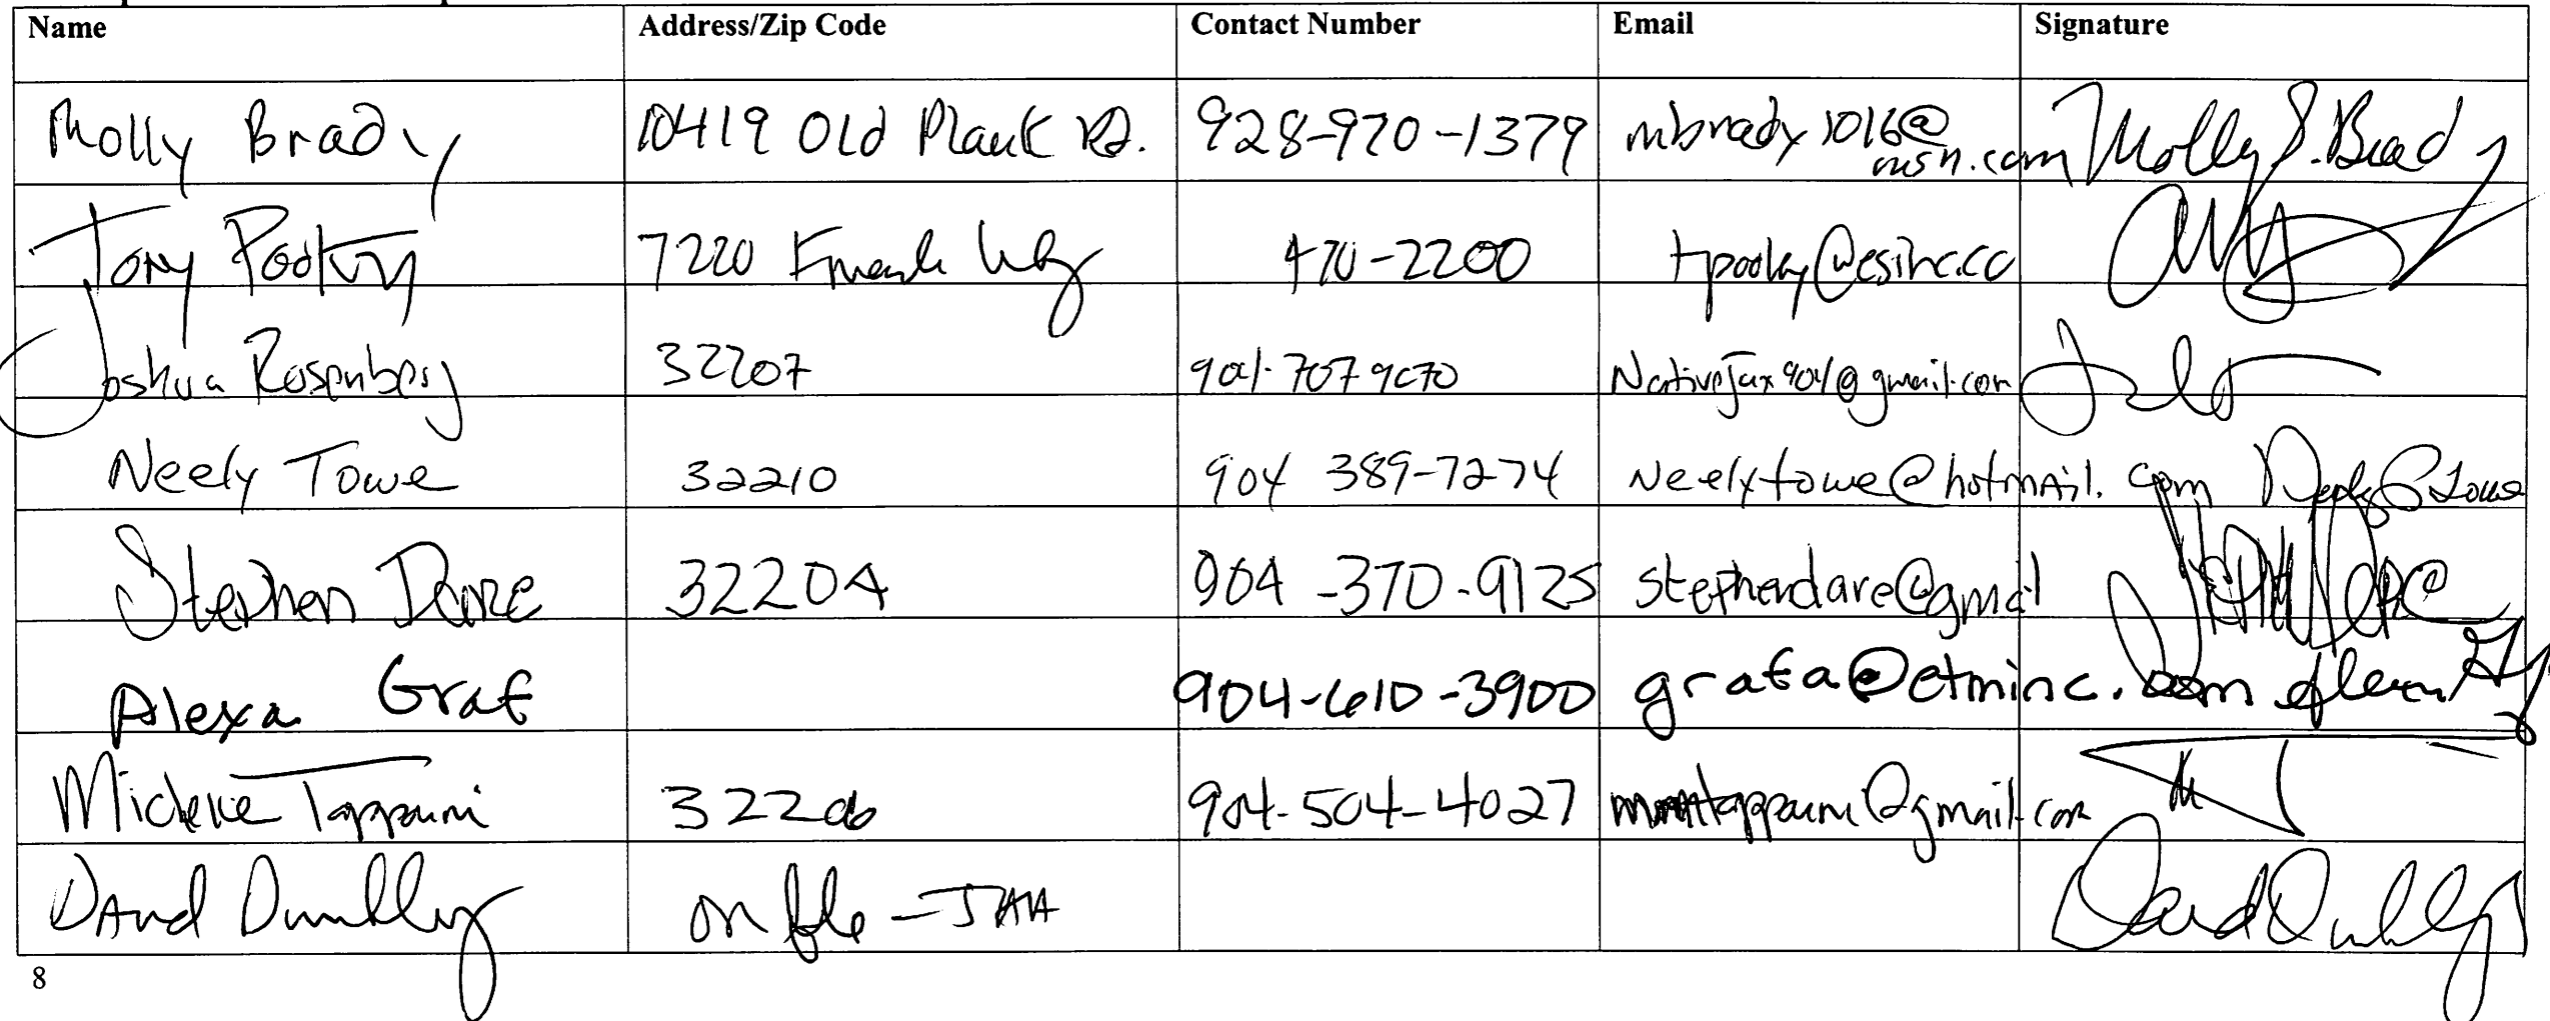 Name Address/Zip Code Contact Number Email Signature
Molly Brady 10419 Old Plank Rd. 928-970-1379 mbrady1016@msn.com Molly S. Brady
Tony 7220 470-2200
Joshua Rosenberg 32207 904-707 9070 NativeJax904@gmail.com
Neely Towe 32210 904 389-7274 Neelytowe@hotmail.com Neely Towe
Stephen Dare 32204 904-370-9125 stephendare@gmail Stephen Dare
Alexa Graf 904-610-3900 grafa@etminc.com Alexa Graf
Michelle Tappouni 32206 904-504-4027 @gmail.com
David on file - JAA David
8